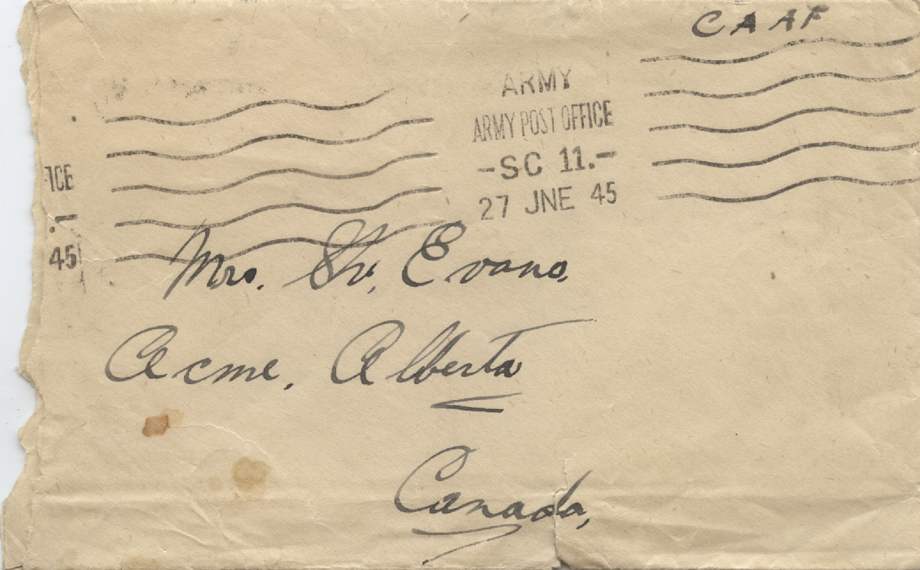 CAAF
ARMY
ARMY POST OFFICE
-SC 11.-
27 JNE 45
ICE
45
Mrs. W. Evans,
Acme, Alberta
Canada,